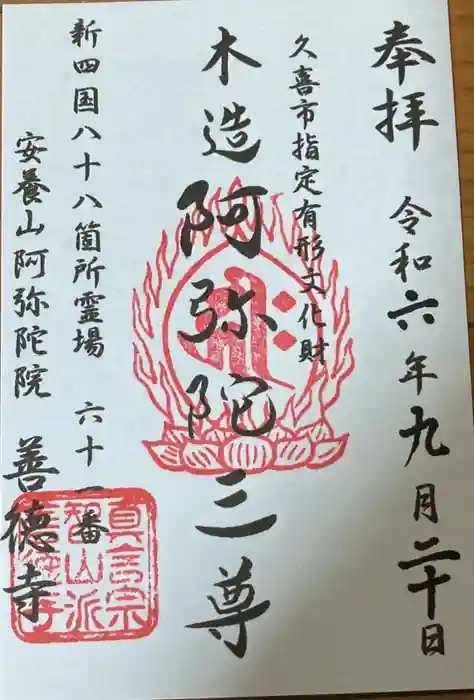 奉拝 令和六年九月二十日
久喜市指定有形文化財
木造阿弥陀三尊
新四国八十八箇所霊場 六十一番
安養山阿弥陀院 善徳寺
真言宗
智山派
善徳寺